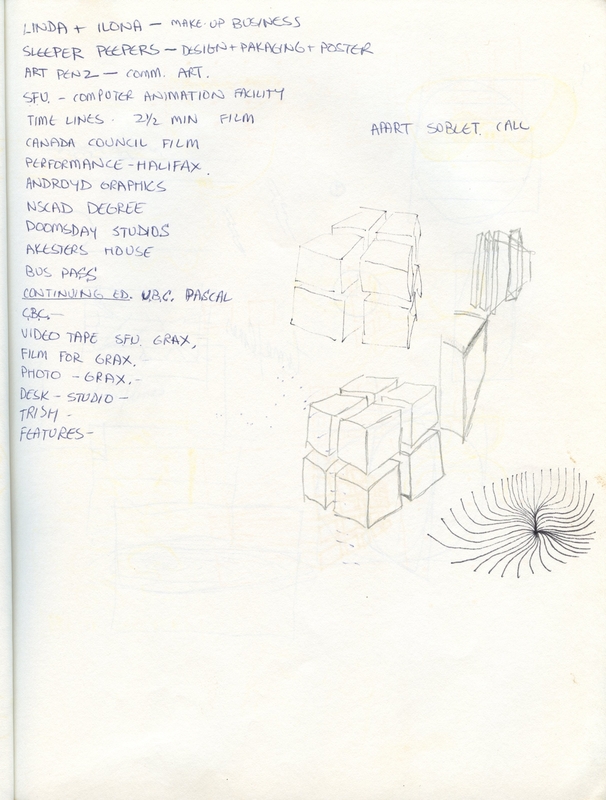 LINDA + ILONA — MAKE-UP BUSINESS
SLEEPER PEEPERS — DESIGN + PAKAGING + POSTER
ART PENZ — COMM. ART.
SFU. - COMPUTER ANIMATION FACILITY
TIME LINES. 2½ MIN FILM
APART SUBLET. CALL
CANADA COUNCIL FILM
PERFORMANCE - HALIFAX.
ANDROYD GRAPHICS
NSCAD DEGREE
DOOMSDAY STUDIOS
AKESTERS HOUSE
BUS PASS
CONTINUING ED. U.B.C. PASCAL
CBC —
VIDEO TAPE SFU. GRAX,
FILM FOR GRAX.
PHOTO - GRAX. -
DESK - STUDIO -
TRISH -
FEATURES -